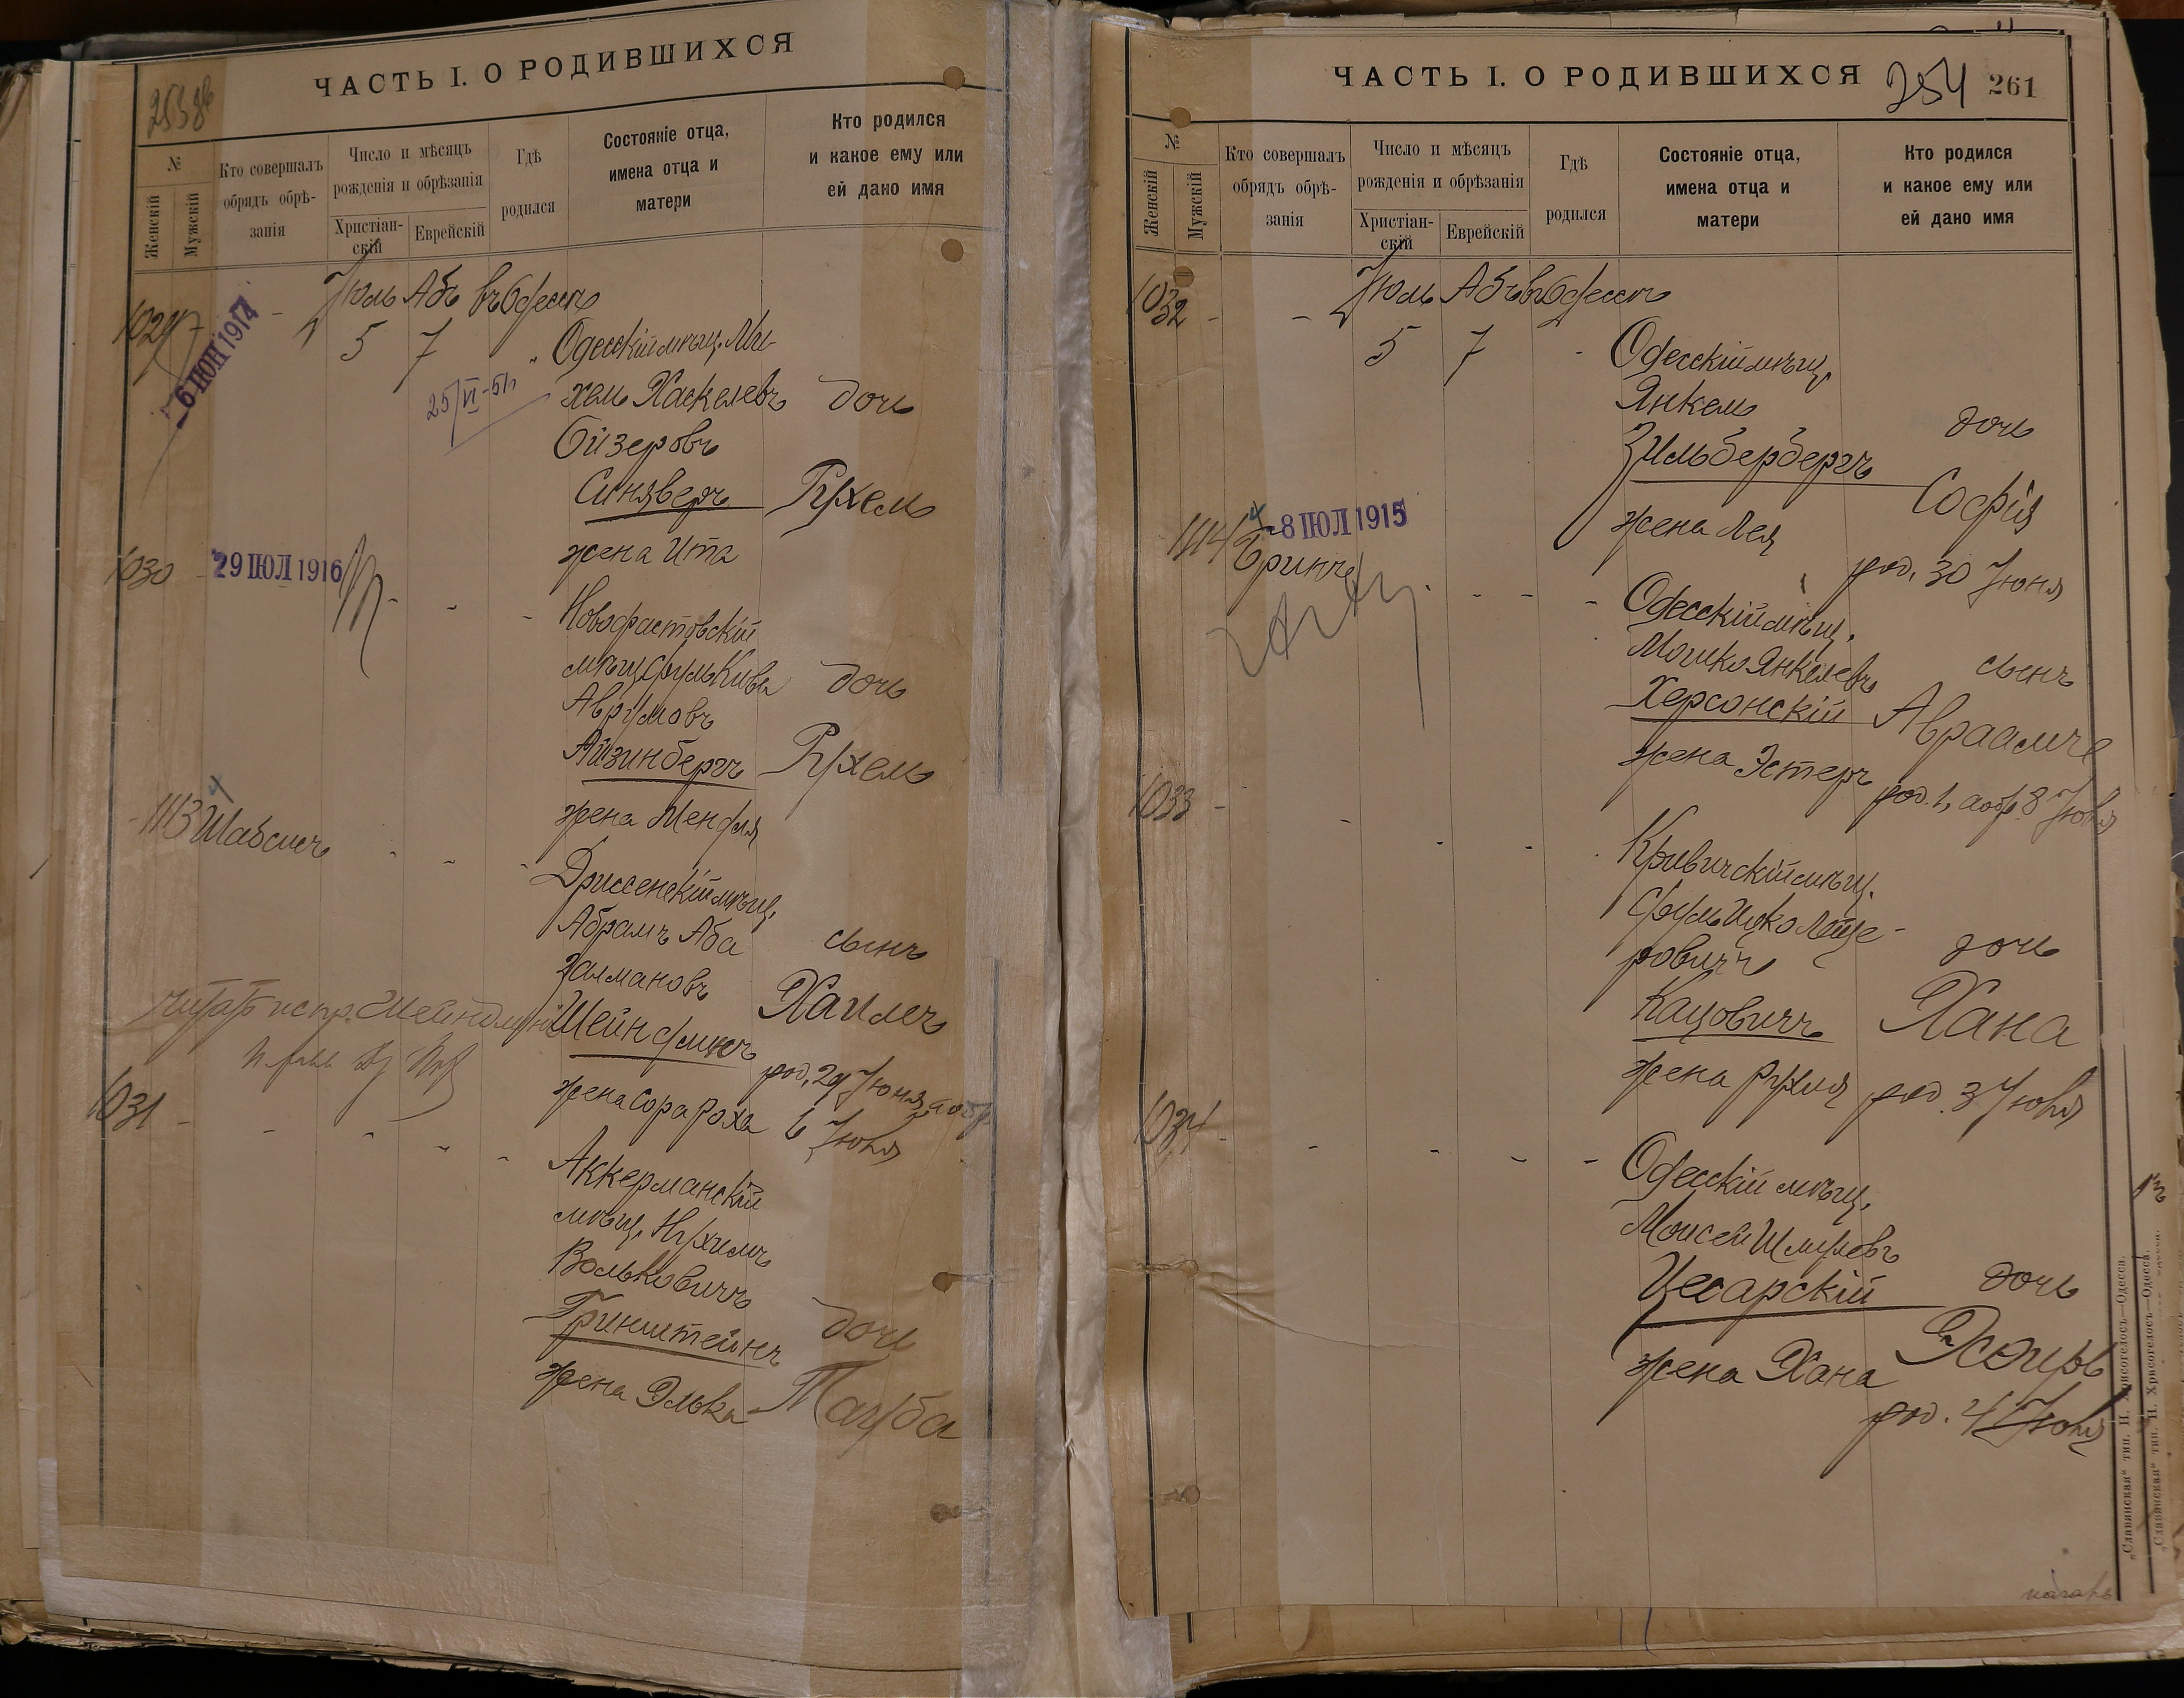 ЧАСТЬ I. О РОДИВШИХСЯ
№
Женскій
Мужскій
Кто совершалъ
обрядъ обрѣ-
занія
Число и мѣсяцъ
рожденія и обрѣзанія
Христіан-
скій
Еврейскій
Гдѣ
родился
Состояніе отца,
имена отца и
матери
Кто родился
и какое ему или
ей дано имя
1029
6 ІЮН 1914
Іюль Абъ въ Одессѣ
5 7
25/VI-51
Одесскій мѣщ. Ми-
хель Хаскелевъ дочь
Ойзеровъ
Синяверъ Рухель
жена Ита
1030
29 ІЮЛ 1916
Новофастовскій
мѣщ. Сруль Кива дочь
Аврумовъ
Айзинбергъ Рухель
жена Мендля
1113 Шабсисъ
Дриссенскій мѣщ.
Абрамъ Аба сынъ
Залмановъ
Хаимъ
род. 29 Іюня, а обр.
жена Сора Роха 6 Іюля
1031
Аккерманскій
мѣщ. Нухимъ
Вольковичъ
Гринштейнъ дочь
жена Элька Тауба
ЧАСТЬ I. О РОДИВШИХСЯ 254 261
№
Женскій
Мужскій
Кто совершалъ
обрядъ обрѣ-
занія
Число и мѣсяцъ
рожденія и обрѣзанія
Христіан-
скій
Еврейскій
Гдѣ
родился
Состояніе отца,
имена отца и
матери
Кто родился
и какое ему или
ей дано имя
1032
Іюль Абъ въ Одессѣ
5 7
Одесскій мѣщ.
Янкель дочь
Зильбербергъ
Софія
жена Лея
род. 30 Іюня
1114
8 ІЮЛ 1915
Одесскій мѣщ.
Мошко Янкелевъ сынъ
Херсонскій Авраамъ
жена Эстеръ род. 1, а обр. 8 Іюля
1033
Кривичскій мѣщ.
Сруль Ицко Лейзе-
ровичъ дочь
Кацовичъ Хана
жена Рухля род. 3 Іюля
1034
Одесскій мѣщ.
Моисей Шмулевъ
Цесарскій дочь
Эсѳирь
жена Хана
род. 4 Іюля
„Славянская“ тип. Н. Хрисогелосъ—Одесса.
„Славянская“ тип. Н. Хрисогелосъ—Одесса.